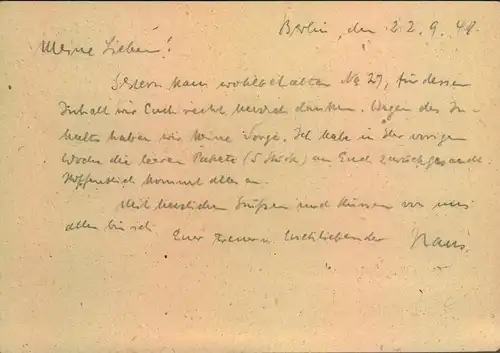 Berlin, den 22.9.48.
Meine Lieben!
Gestern kam wohlbehalten No 27, für dessen
Inhalt wir Euch recht herzlich danken. Wegen des In-
halts haben wir keine Sorge. Ich habe in der vorigen
Woche die leeren Pakete (5 Stück) an Euch zurückgesandt.
Hoffentlich kommt alles an.
Mit herzlichen Grüßen und Küssen von uns
allen bin ich
Euer treuer u. Euch liebender Hans.